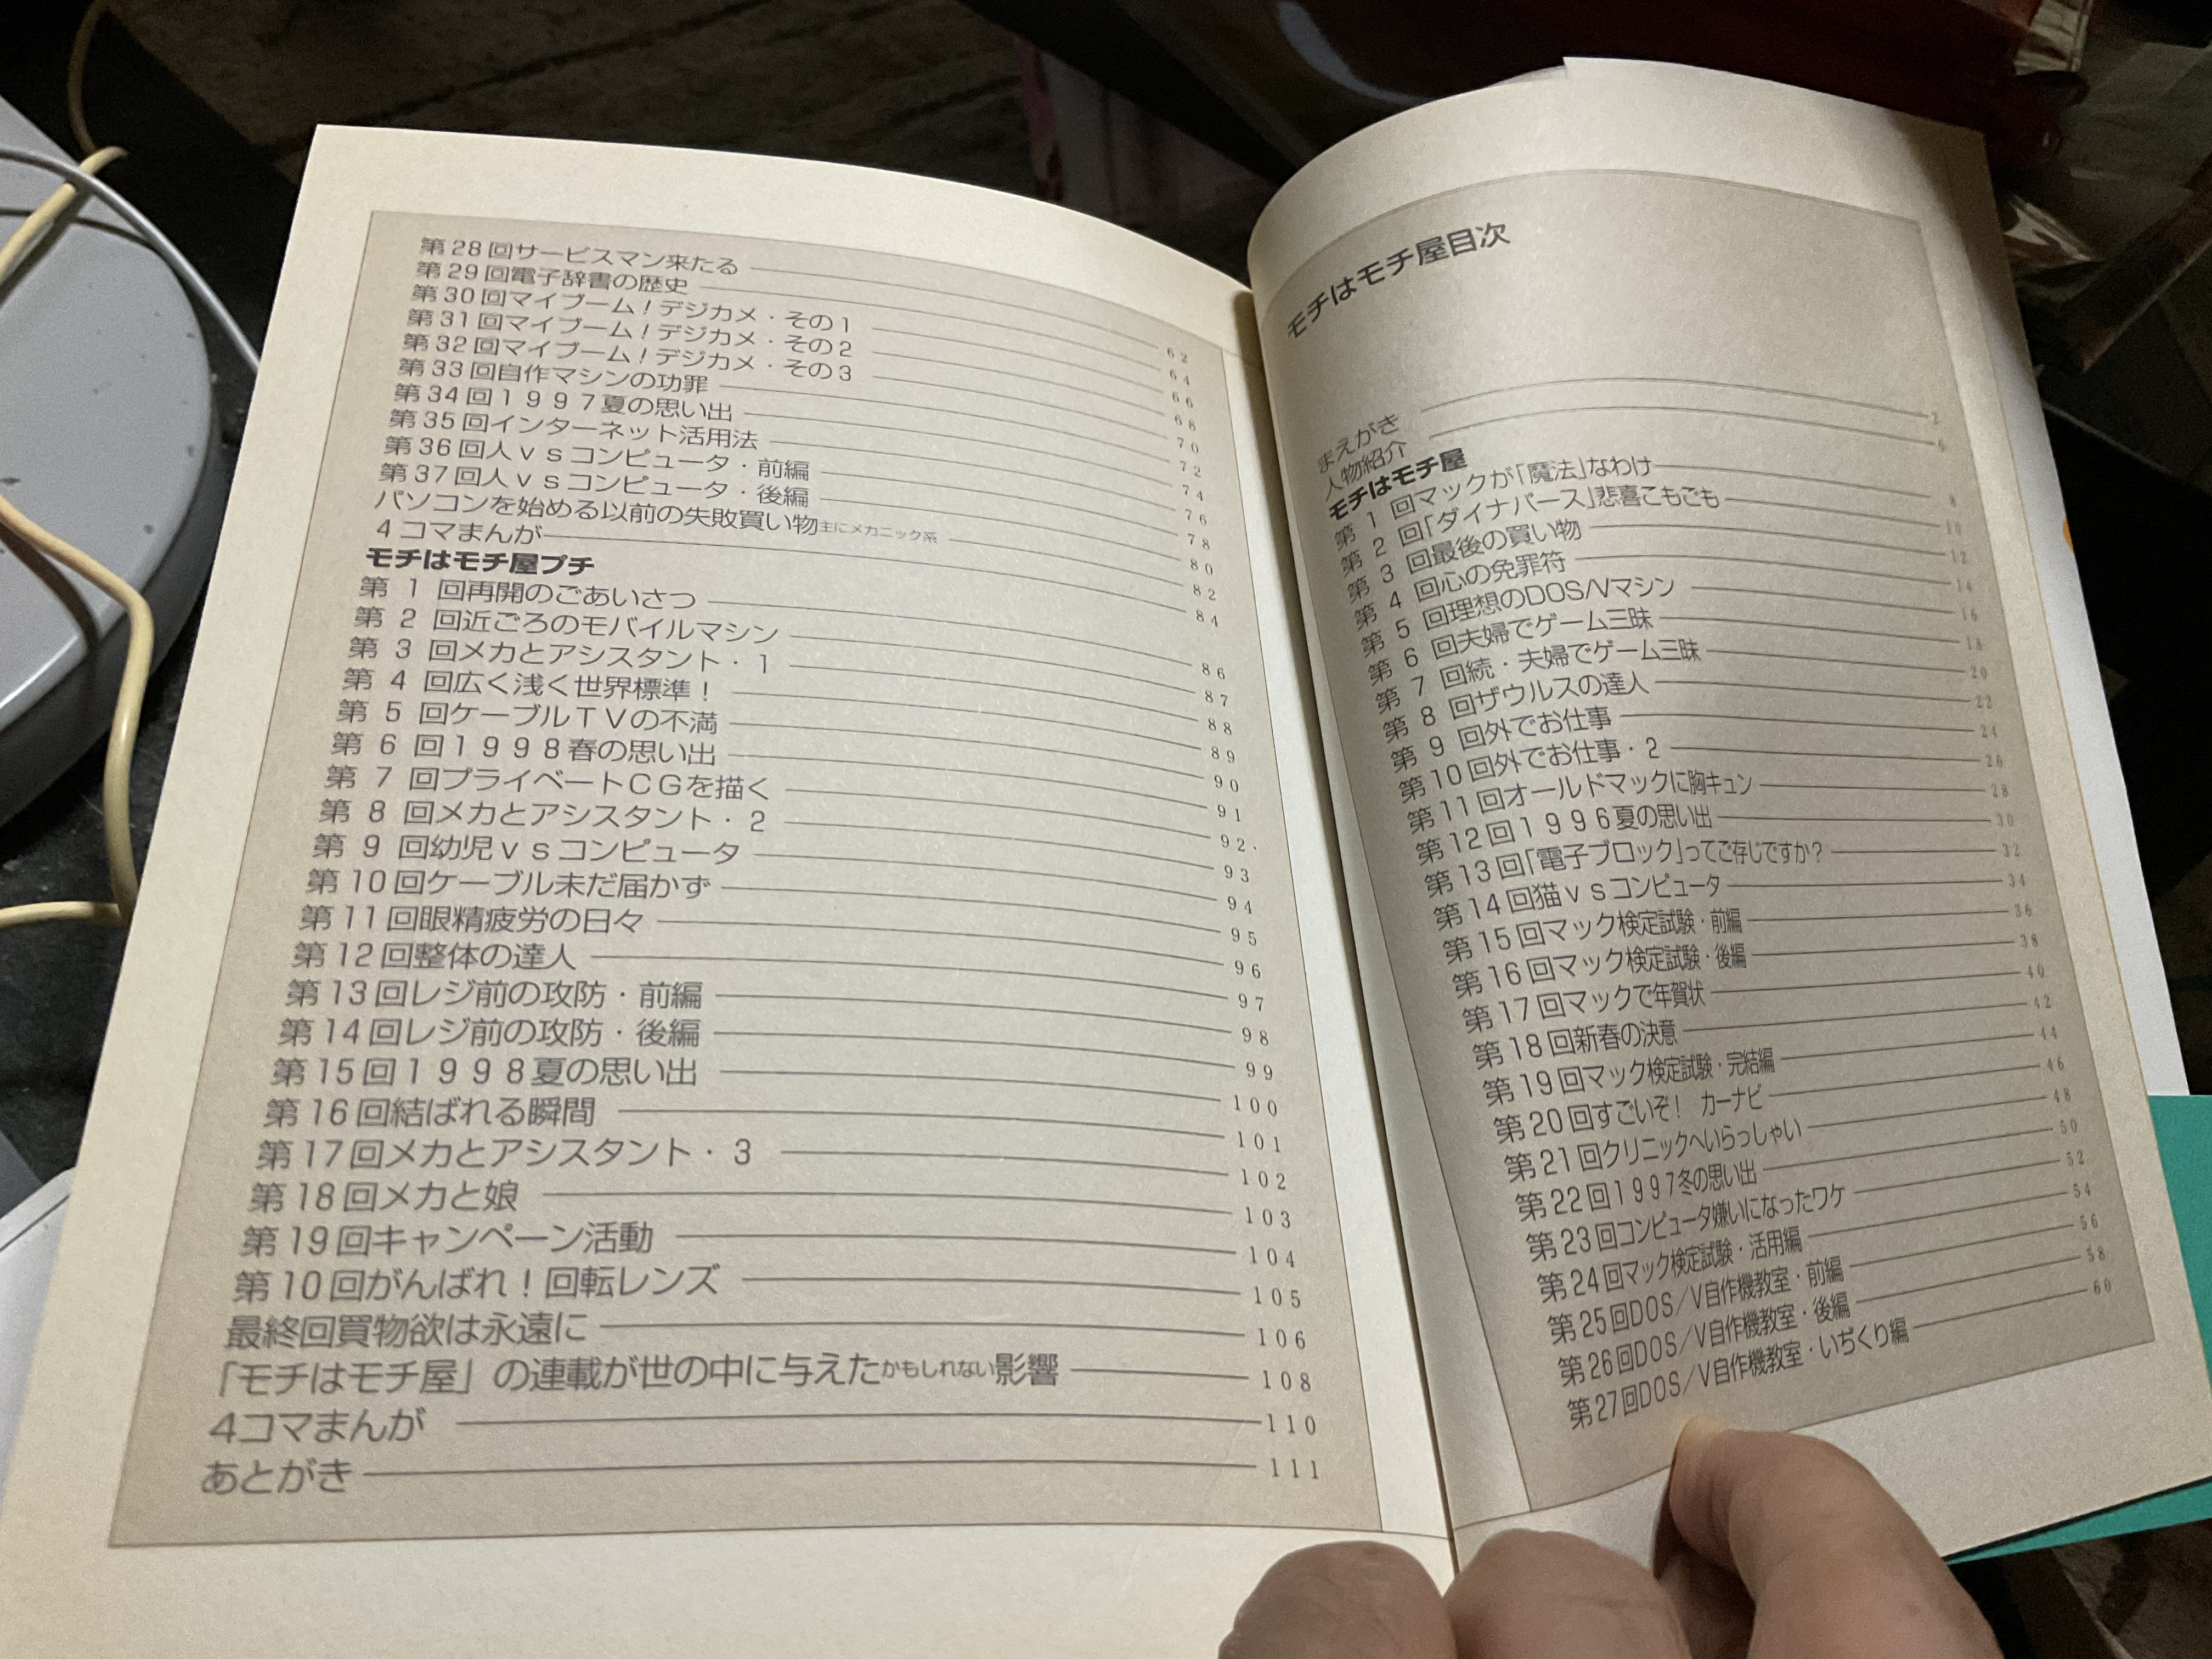 モチはモチ屋目次
まえがき 2
人物紹介 6
モチはモチ屋
第1回マックが「魔法」なわけ 8
第2回「ダイナパース」悲喜こもごも 10
第3回最後の買い物 12
第4回心の免罪符 14
第5回理想のDOS/Vマシン 16
第6回夫婦でゲーム三昧 18
第7回続・夫婦でゲーム三昧 20
第8回ザウルスの達人 22
第9回外でお仕事 24
第10回外でお仕事・2 26
第11回オールドマックに胸キュン 28
第12回1996夏の思い出 30
第13回「電子ブロック」ってご存じですか? 32
第14回猫vsコンピュータ 34
第15回マック検定試験・前編 36
第16回マック検定試験・後編 38
第17回マックで年賀状 40
第18回新春の決意 42
第19回マック検定試験・完結編 44
第20回すごいぞ! カーナビ 46
第21回クリニックへいらっしゃい 48
第22回1997冬の思い出 50
第23回コンピュータ嫌いになったワケ 52
第24回マック検定試験・活用編 54
第25回DOS/V自作機教室・前編 56
第26回DOS/V自作機教室・後編 58
第27回DOS/V自作機教室・いぢくり編 60
第28回サービスマン来たる 62
第29回電子辞書の歴史 64
第30回マイブーム!デジカメ・その1 66
第31回マイブーム!デジカメ・その2 68
第32回マイブーム!デジカメ・その3 70
第33回自作マシンの功罪 72
第34回1997夏の思い出 74
第35回インターネット活用法 76
第36回人vsコンピュータ・前編 78
第37回人vsコンピュータ・後編 80
パソコンを始める以前の失敗買い物主にメカニック系 82
4コマまんが 84
モチはモチ屋プチ
第1回再開のごあいさつ 86
第2回近ごろのモバイルマシン 87
第3回メカとアシスタント・1 88
第4回広く浅く世界標準! 89
第5回ケーブルTVの不満 90
第6回1998春の思い出 91
第7回プライベートCGを描く 92
第8回メカとアシスタント・2 93
第9回幼児vsコンピュータ 94
第10回ケーブル未だ届かず 95
第11回眼精疲労の日々 96
第12回整体の達人 97
第13回レジ前の攻防・前編 98
第14回レジ前の攻防・後編 99
第15回1998夏の思い出 100
第16回結ばれる瞬間 101
第17回メカとアシスタント・3 102
第18回メカと娘 103
第19回キャンペーン活動 104
第10回がんばれ!回転レンズ 105
最終回買物欲は永遠に 106
「モチはモチ屋」の連載が世の中に与えたかもしれない影響 108
4コマまんが 110
あとがき 111